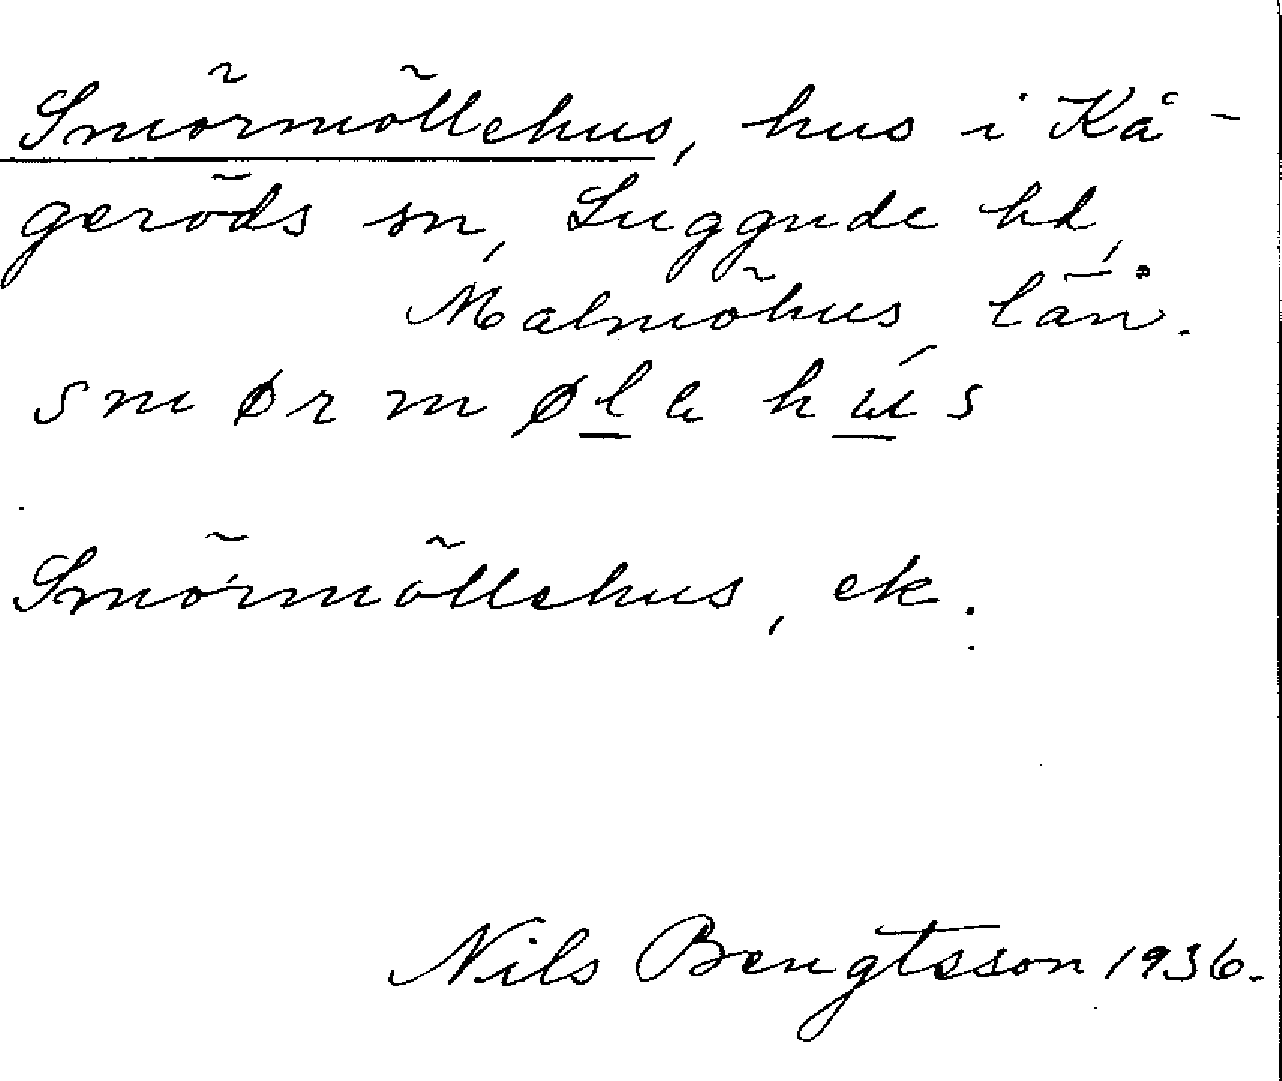 Smörmöllehus, hus i Kå-
geröds sn, Luggude hd,
Malmöhus län.
smørmøla hús
Smörmöllehus, ek.
Nils Bengtsson 1936.